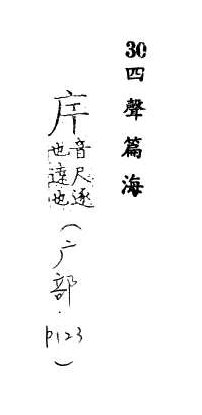 30四聲篇海
音尺逐
也遠也
(广部.p123)